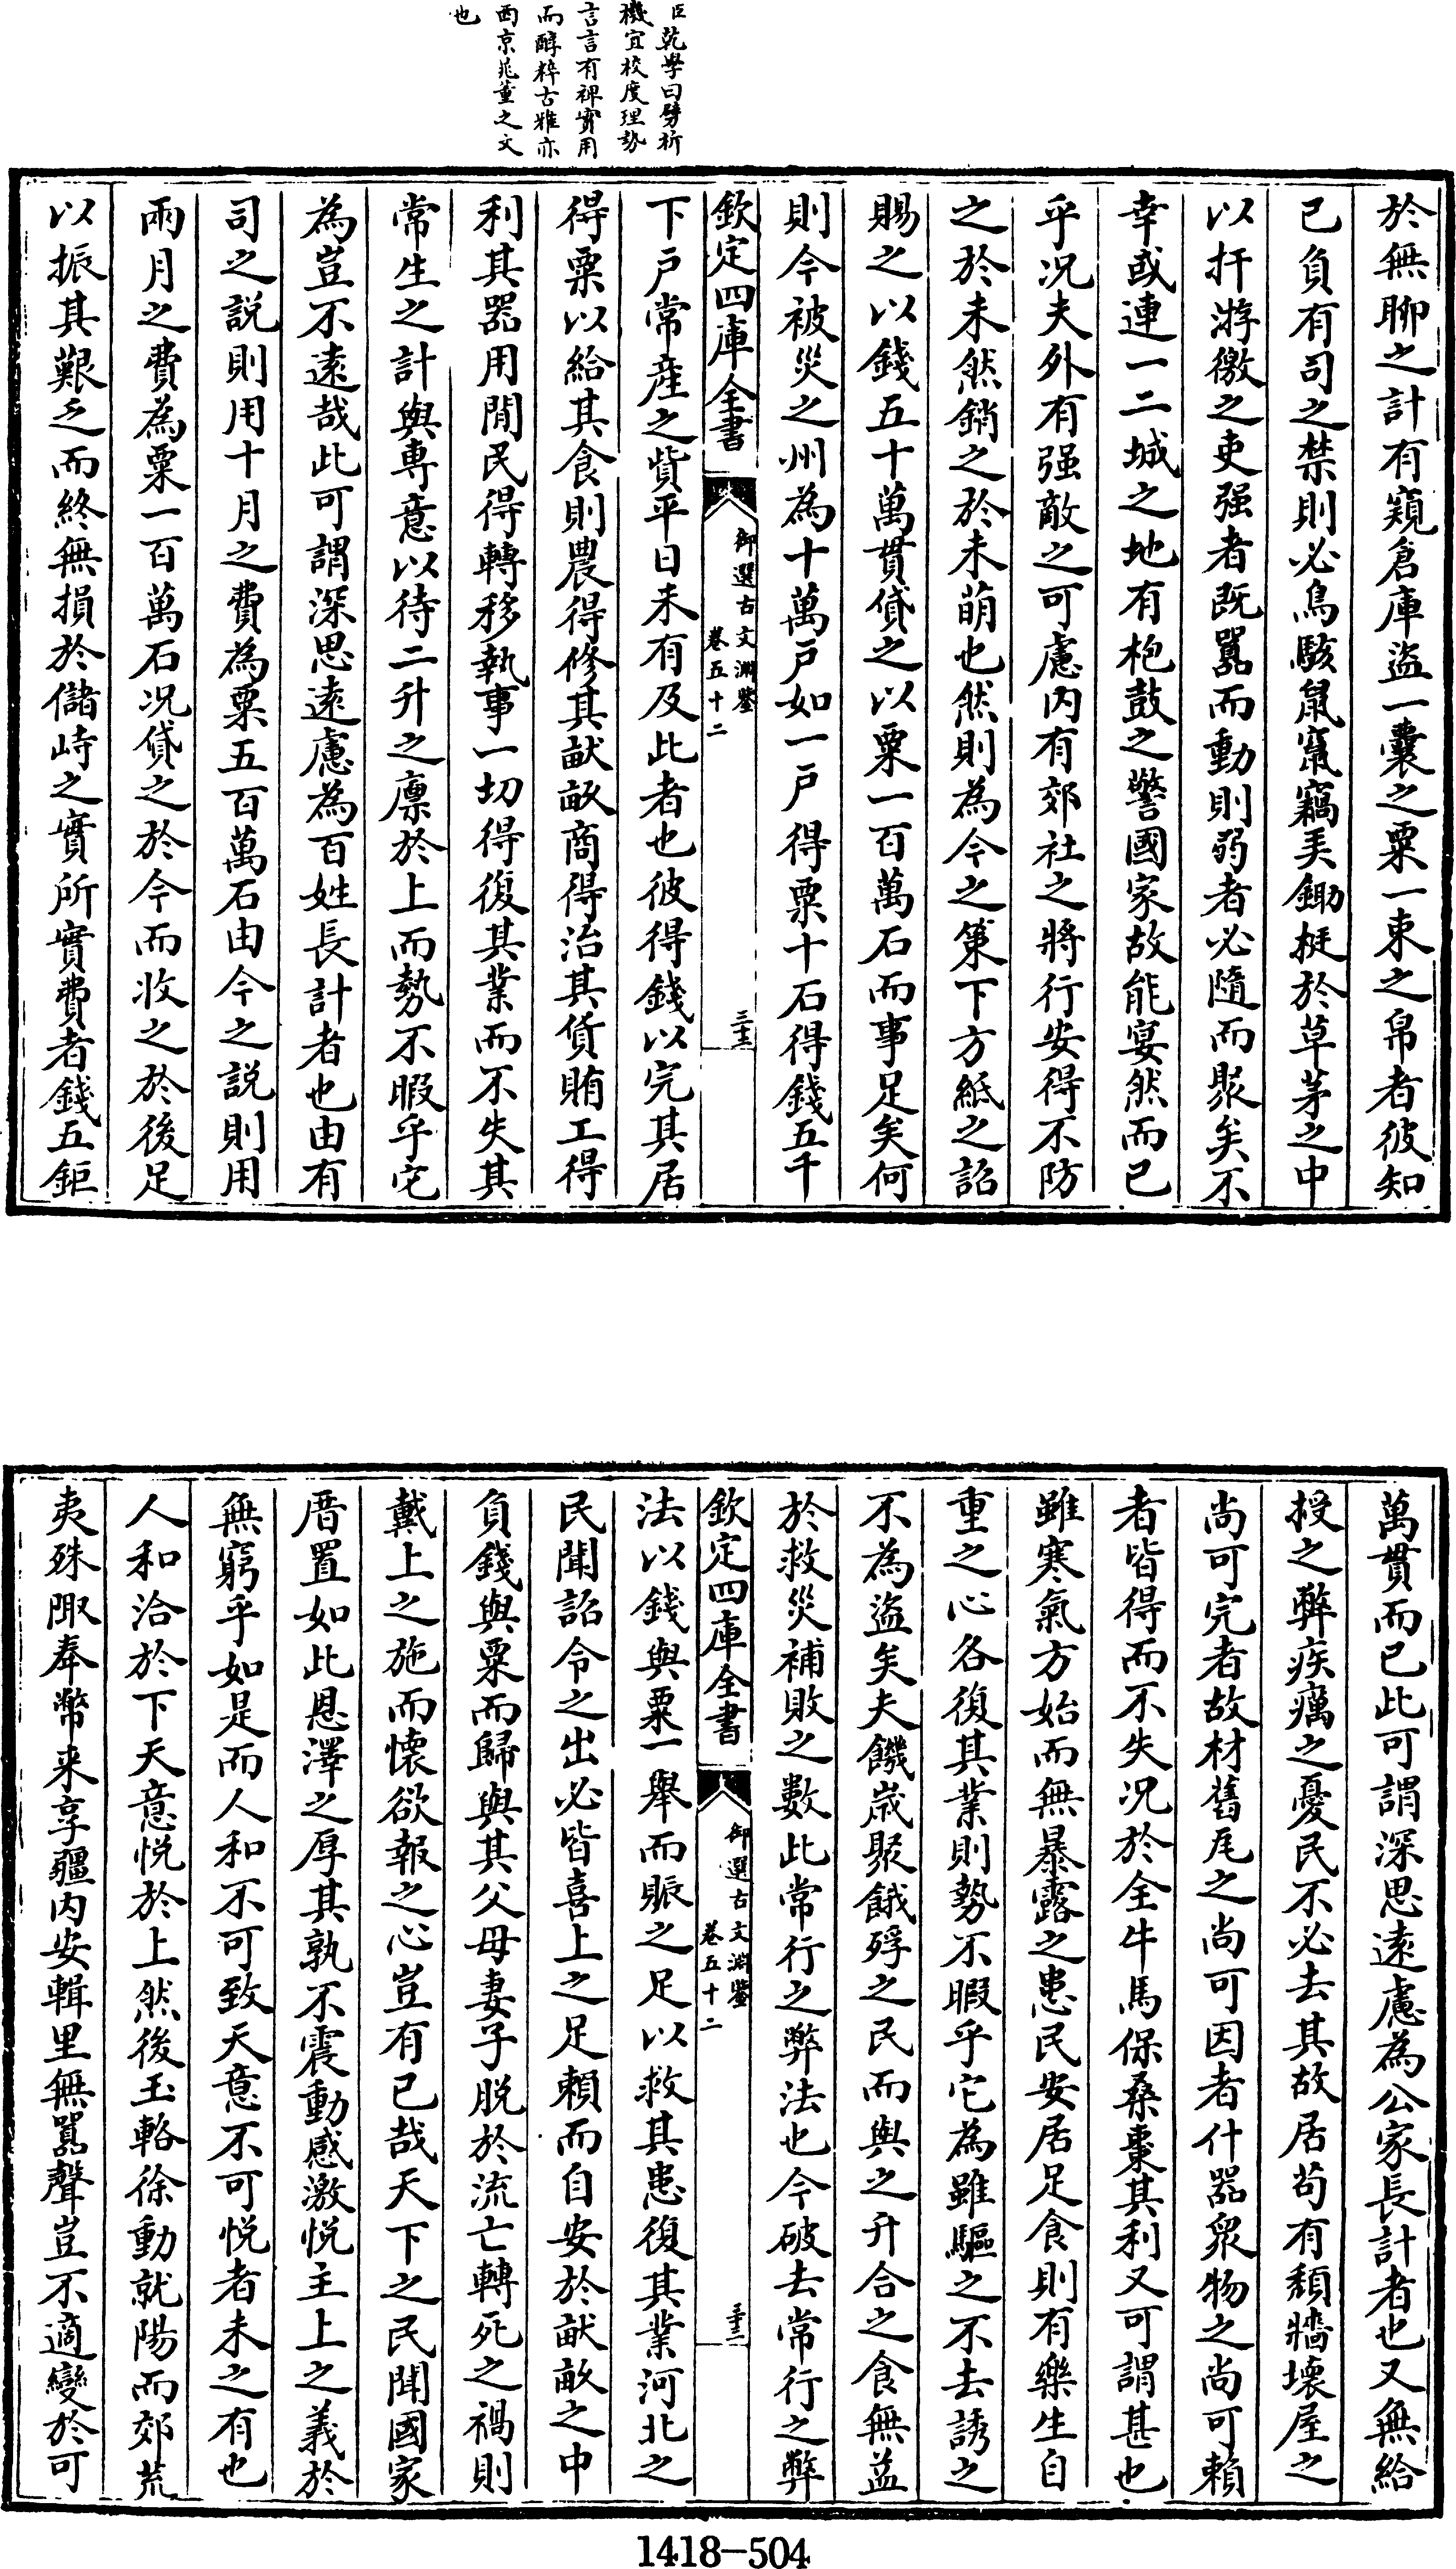 臣乾學曰劈析
機宜校度理勢
言言有禆實用
而醇粹古雅亦
西京鼂董之文
也
於無聊之計有窺倉庫盜一囊之粟一束之帛者彼知
已負有司之禁則必鳥駭鼠竄竊弄鋤梃於草茅之中
以扞游徼之吏强者既囂而動則弱者必隨而聚矣不
幸或連一二城之地有枹鼓之警國家故能宴然而已
乎况夫外有强敵之可慮内有郊社之將行安得不防
之於未然銷之於未萌也然則為今之策下方紙之詔
賜之以錢五十萬貫貸之以粟一百萬石而事足矣何
則今被災之州為十萬戶如一戶得粟十石得錢五千
欽定四庫全書
御選古文淵鑒
卷五十二
三十二
下戶常産之貲平日未有及此者也彼得錢以完其居
得粟以給其食則農得修其畎畝商得治其貨賄工得
利其器用閒民得轉移執事一切得復其業而不失其
常生之計與專意以待二升之廪於上而勢不暇乎它
為豈不遠哉此可謂深思遠慮為百姓長計者也由有
司之説則用十月之費為粟五百萬石由今之説則用
兩月之費為粟一百萬石况貸之於今而收之於後足
以振其艱乏而終無損於儲峙之實所實費者錢五鉅
萬貫而已此可謂深思遠慮為公家長計者也又無給
授之弊疾癘之憂民不必去其故居茍有頽牆壞屋之
尚可完者故材舊瓦之尚可因者什器衆物之尚可賴
者皆得而不失况於全牛馬保桑棗其利又可謂甚也
雖寒氣方始而無暴露之患民安居足食則有樂生自
重之心各復其業則勢不暇乎它為雖驅之不去誘之
不為盜矣夫饑嵗聚餓殍之民而與之升合之食無益
於救災補敗之數此常行之弊法也今破去常行之弊
欽定四庫全書
御選古文淵鑒
卷五十二
三十三
法以錢與粟一舉而賑之足以救其患復其業河北之
民聞詔令之出必皆喜上之足賴而自安於畎畝之中
負錢與粟而歸與其父母妻子脱於流亡轉死之禍則
戴上之施而懷欲報之心豈有已哉天下之民聞國家
厝置如此恩澤之厚其孰不震動感激悦主上之義於
無窮乎如是而人和不可致天意不可悦者未之有也
人和洽於下天意悦於上然後玉輅徐動就陽而郊荒
夷殊陬奉幣来享疆内安輯里無囂聲豈不適變於可
1418-504